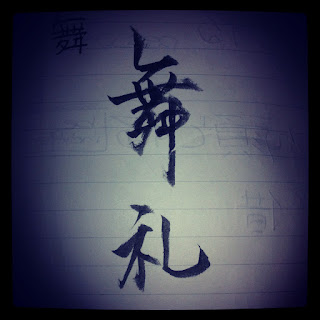 舞
舞
礼